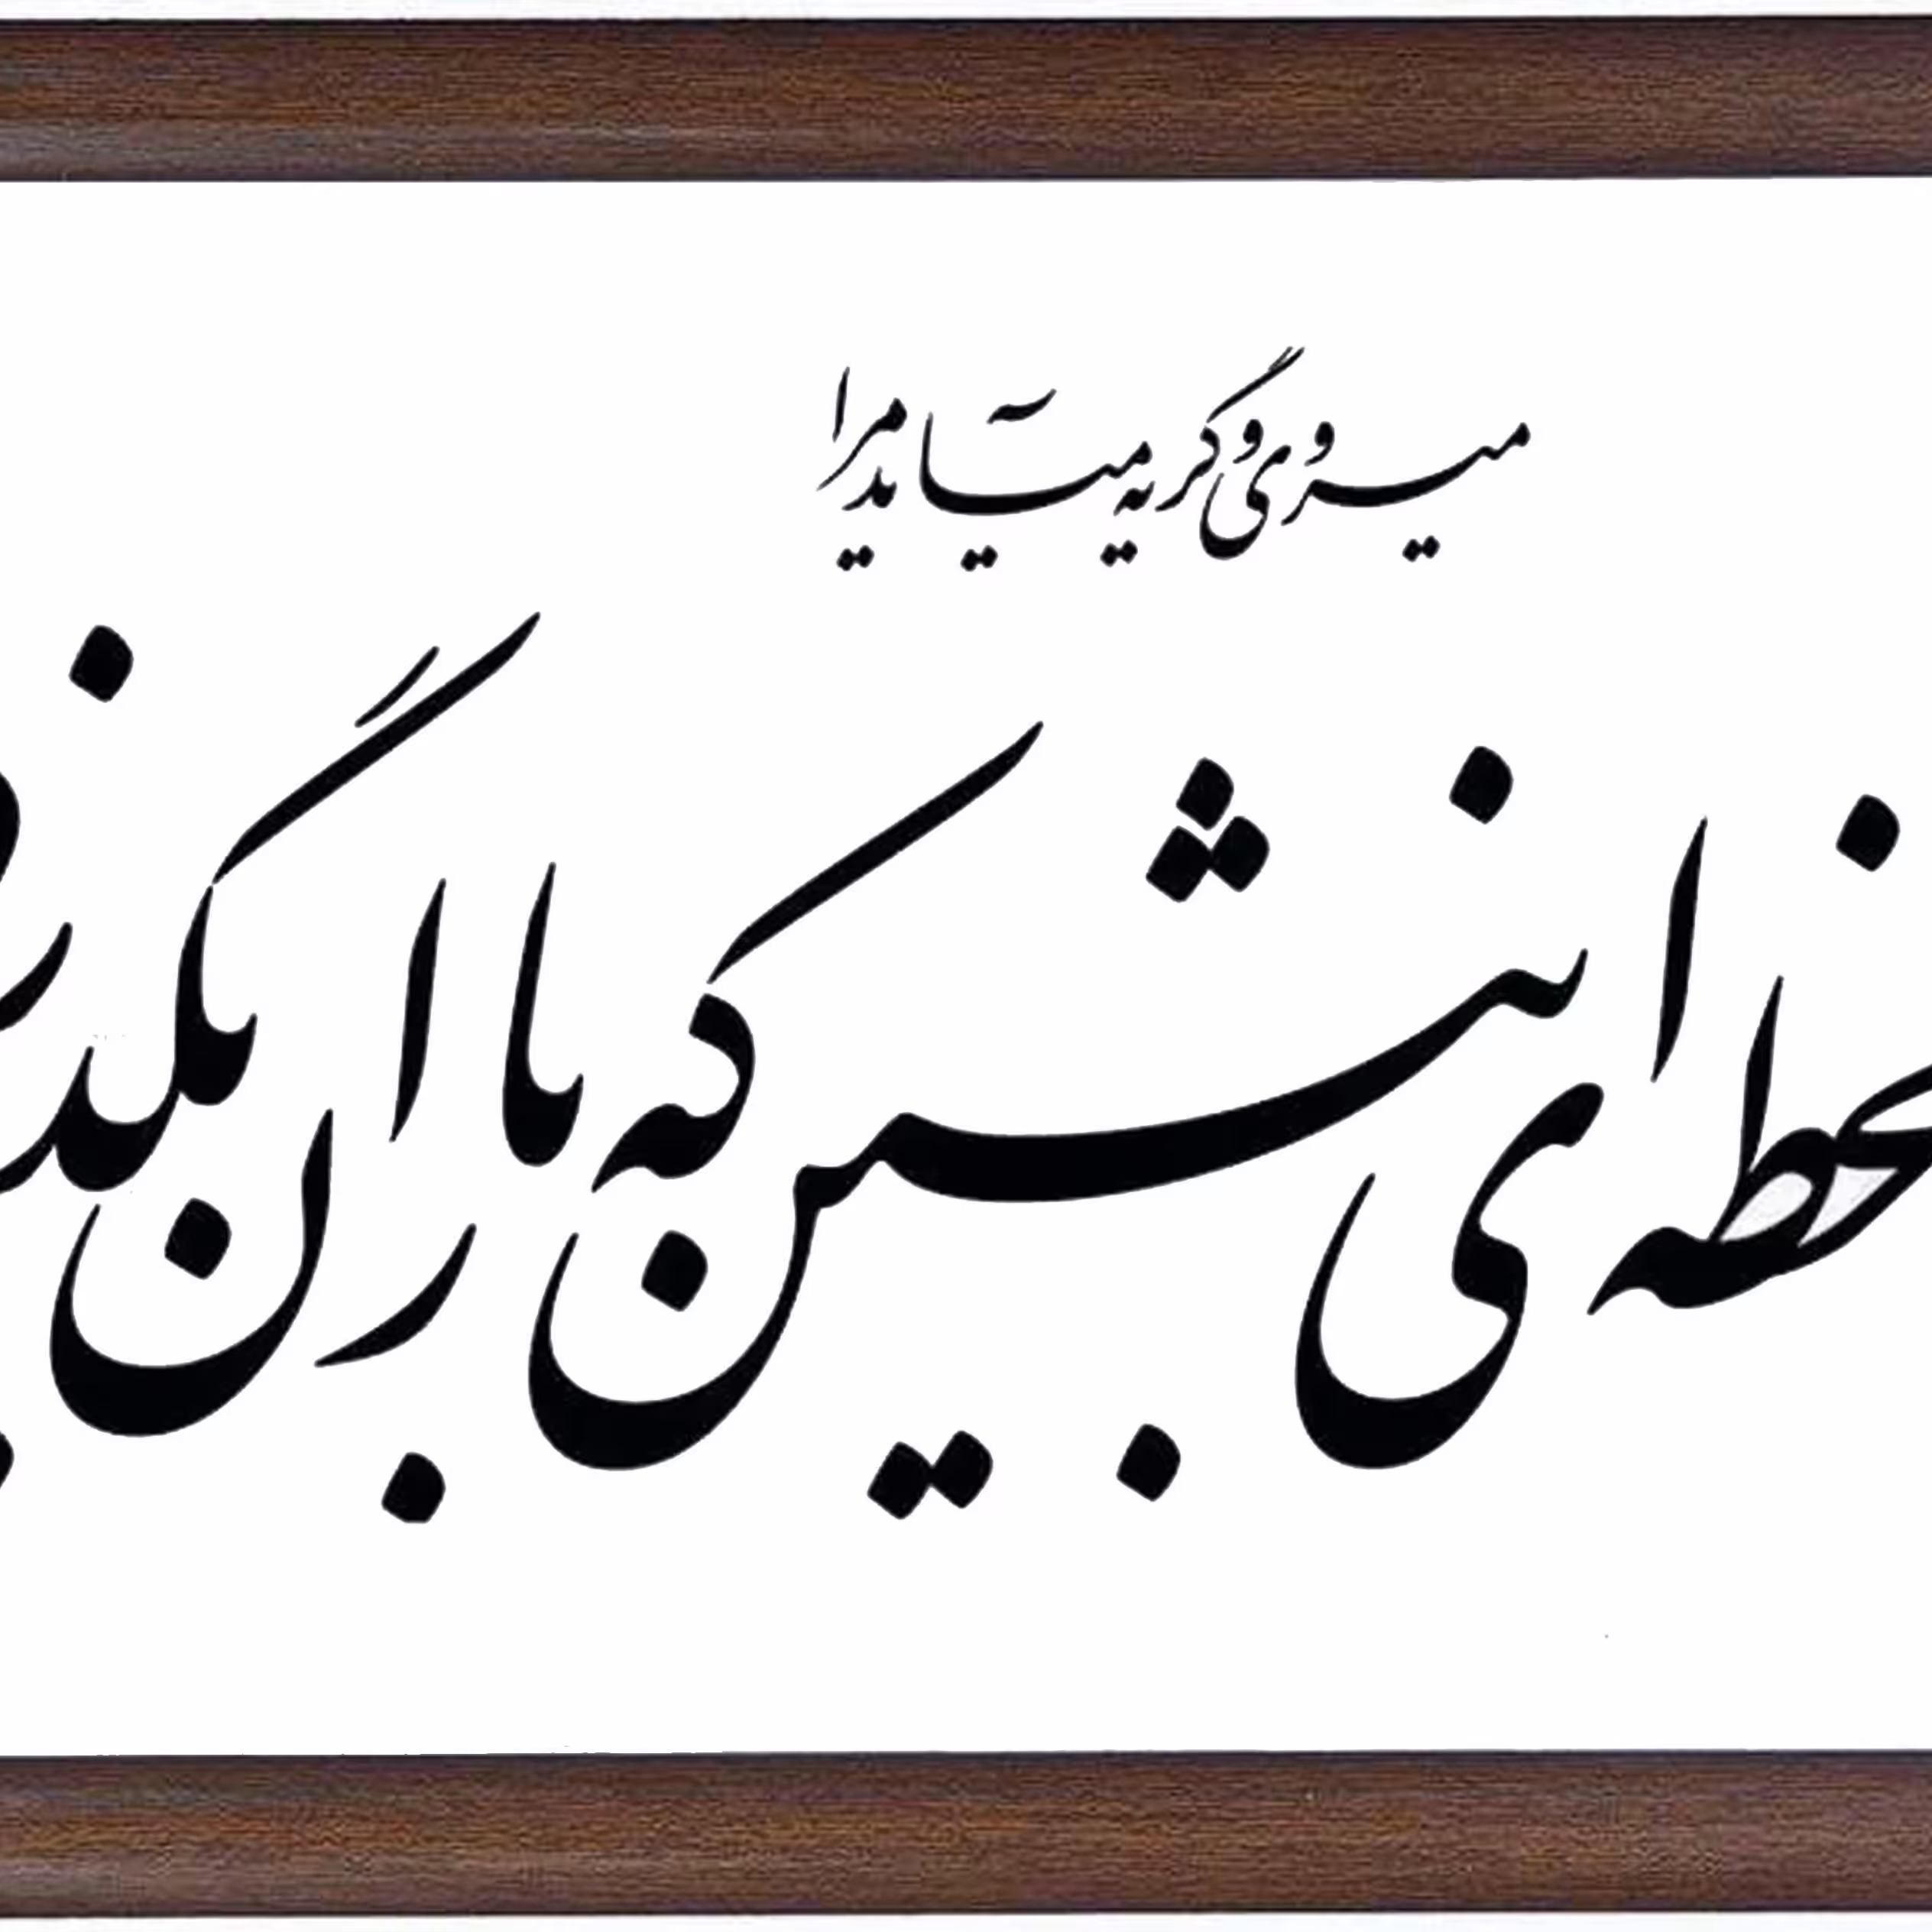 میروی و گریه می‌آید مرا
لحظه‌ای بنشین که باران بگذرد